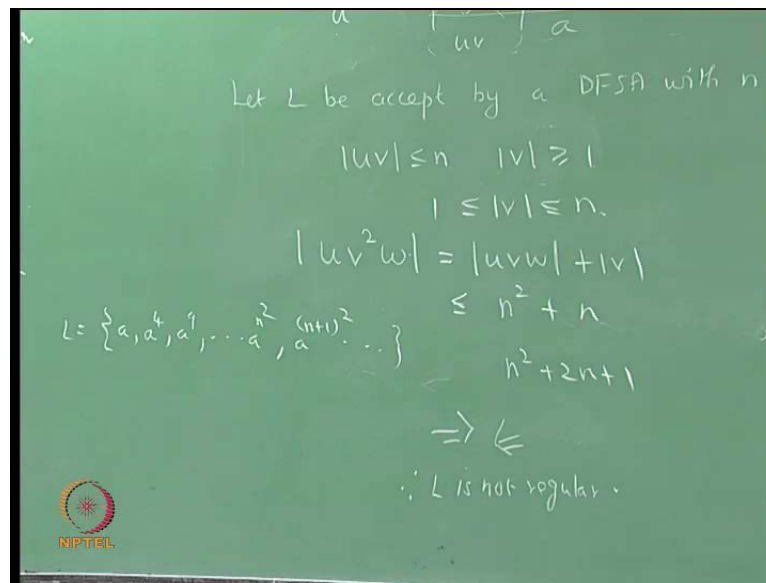 uv a
Let L be accept by a DFSA with n
|uv| ≤ n |v| ≥ 1
1 ≤ |v| ≤ n.
|uv²w| = |uvw| + |v|
≤ n² + n
L = {a, a⁴, a⁹, ... a^n², a^(n+1)² ... }
n² + 2n + 1
⇒⇐
∴ L is not regular.
NPTEL